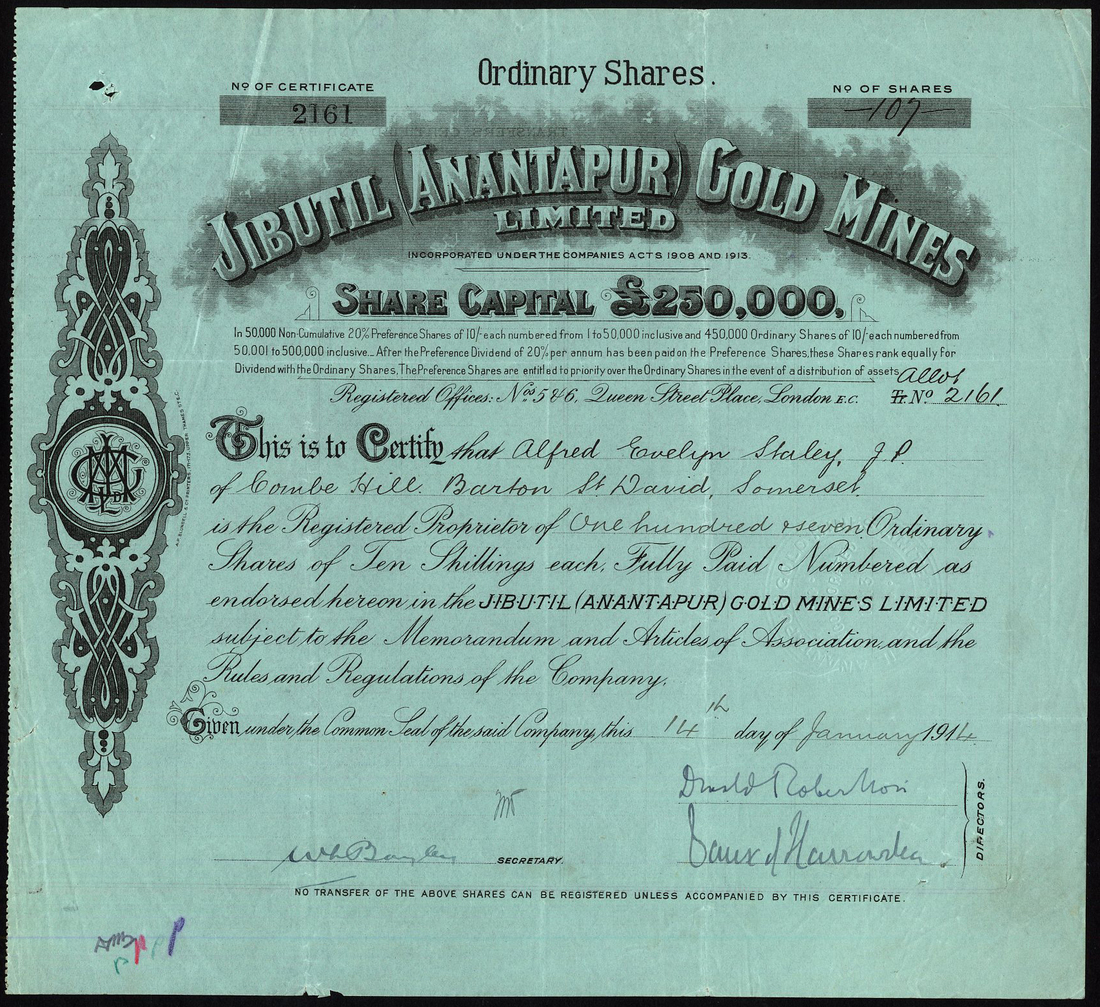 Ordinary Shares.
No OF CERTIFICATE
2161
No OF SHARES
107
JIBUTIL (ANANTAPUR) GOLD MINES
LIMITED
INCORPORATED UNDER THE COMPANIES ACTS 1908 AND 1913.
SHARE CAPITAL £250,000.
In 50,000 Non-Cumulative 20% Preference Shares of 10/- each numbered from 1 to 50,000 inclusive and 450,000 Ordinary Shares of 10/- each numbered from
50,001 to 500,000 inclusive._ After the Preference Dividend of 20% per annum has been paid on the Preference Shares, these Shares rank equally for
Dividend with the Ordinary Shares, The Preference Shares are entitled to priority over the Ordinary Shares in the event of a distribution of assets
Allot
Registered Offices: Nos 5 & 6, Queen Street Place, London E.C. Tr. No 2161
This is to Certify that Alfred Evelyn Staley, J.P.
of Combe Hill. Barton St David, Somerset
is the Registered Proprietor of One hundred & seven Ordinary
Shares of Ten Shillings each, Fully Paid Numbered as
endorsed hereon in the JIBUTIL (ANANTAPUR) GOLD MINES LIMITED
subject to the Memorandum and Articles of Association, and the
Rules and Regulations of the Company.
Given under the Common Seal of the said Company, this 14th day of January 1914
Donald Robertson
Vaux of Harrowden
DIRECTORS.
SECRETARY.
NO TRANSFER OF THE ABOVE SHARES CAN BE REGISTERED UNLESS ACCOMPANIED BY THIS CERTIFICATE.